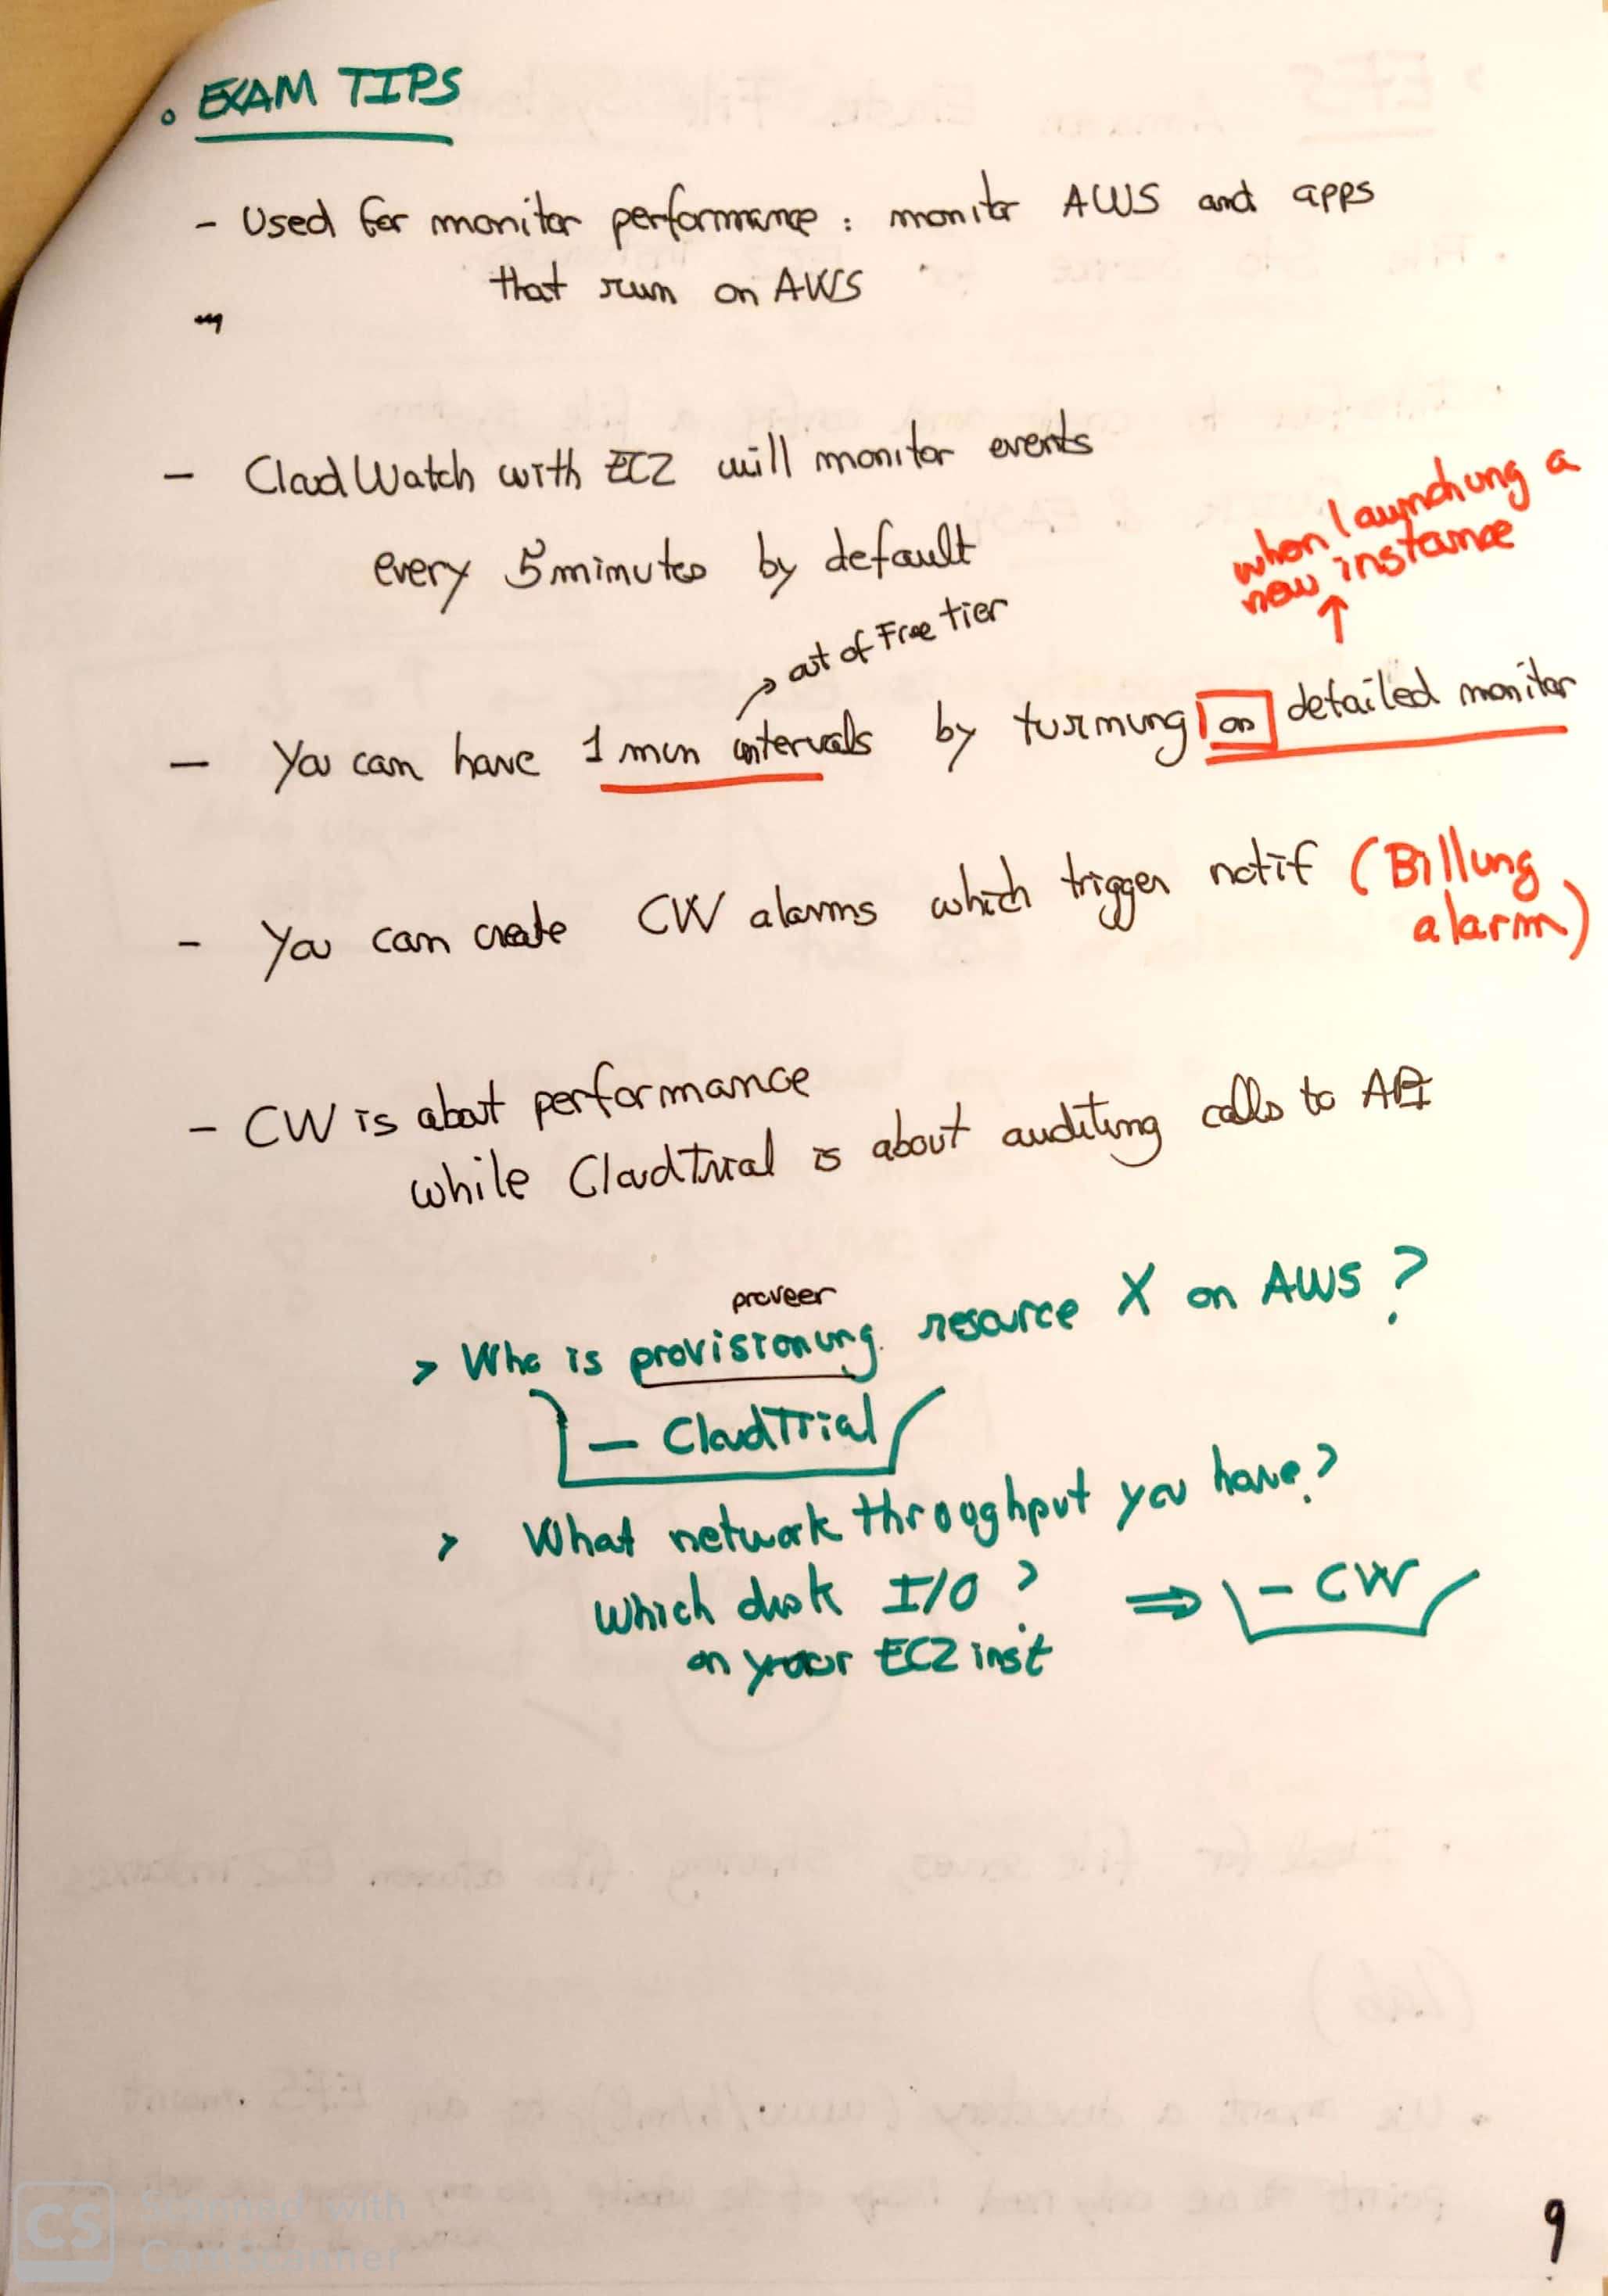 • EXAM TIPS
- Used for monitor performance : monitor AWS and apps
that run on AWS
- Cloud Watch with EC2 will monitor events
every 5 minutes by default
when launching a
new instance
↑
out of Free tier
- You can have 1 min intervals by turning on detailed monitor
- You can create CW alarms which trigger notif (Billing
alarm)
- CW is about performance
while CloudTrial is about auditing calls to API
proveer
> Who is provisioning resource X on AWS ?
- CloudTrial
> What network throughput you have?
Which disk I/O ? ⇒ - CW
on your EC2 inst
9
CS Scanned with
CamScanner